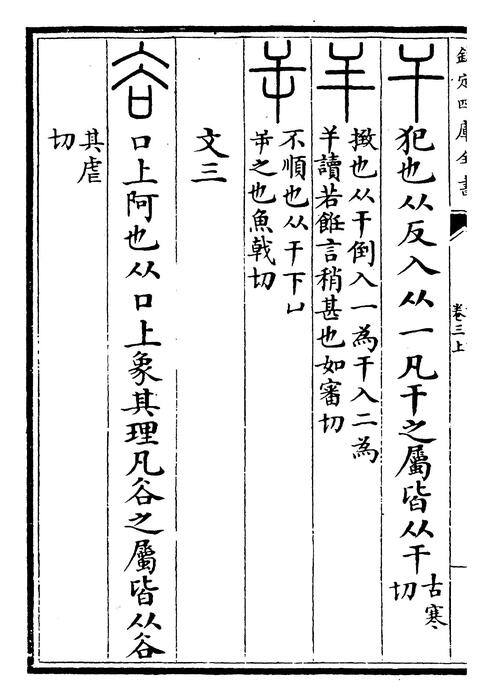 欽定四庫全書
卷三上
干犯也从反入从一凡干之屬皆从干古寒切
𢆉撖也从干倒入一為干入二為
𢆉讀若飪言稍甚也如審切
屰不順也从干下凵
屰之也魚戟切
文三
谷口上阿也从口上象其理凡谷之屬皆从谷
其虐切